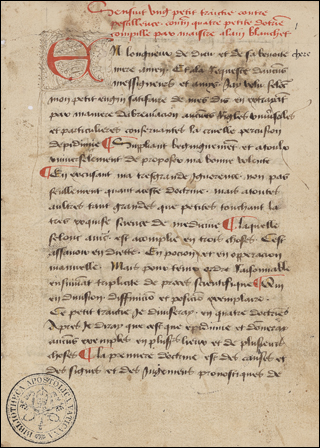 Sensuit vng petit traictie contre
pestillence. contñ quatre petite doctrine
compille par maistre alain blanchet
En longneur de dieu et de sa benoite chere
mere amen. Et a la requeste daucuns
messigneres et amis. Jay volu selon
mon petit engin satisfaire de mes dis en extraiant
par maniere dabreuiacion aucuns regles vniuerseles
et particulieres conseruantes la cruelle
depidimie Suppliant begninguement et a touls
vniuerselement de proposer ma bonne volente
En excusant ma tresgrande ignorence. non pas
seullement quant a ceste doctrine. mais a toutes
aultres tant grandes que petites touchant la
tres requise science de medicine Laquelle
selont auic. est acomplie en trois choses. Cest
assauoir en diette. En pocion et en operacion
manuelle. Mais pour tenir ordre Raisonnable
ensuiuant triplicite de proces sientifique
en diuision. diffinicio et exemplaire.
Ce petit traictie Je diuiseray. en quatre doctrines
Apres Je diray que cest que epidimie et donneray
aucuns exemples en plusſs lieux et de plusieurs
choses La premiere doctrine est des causes et
des signes et des Jugement pronostiques de
BIBLIOTHECA APOSTOLICA VATICANA